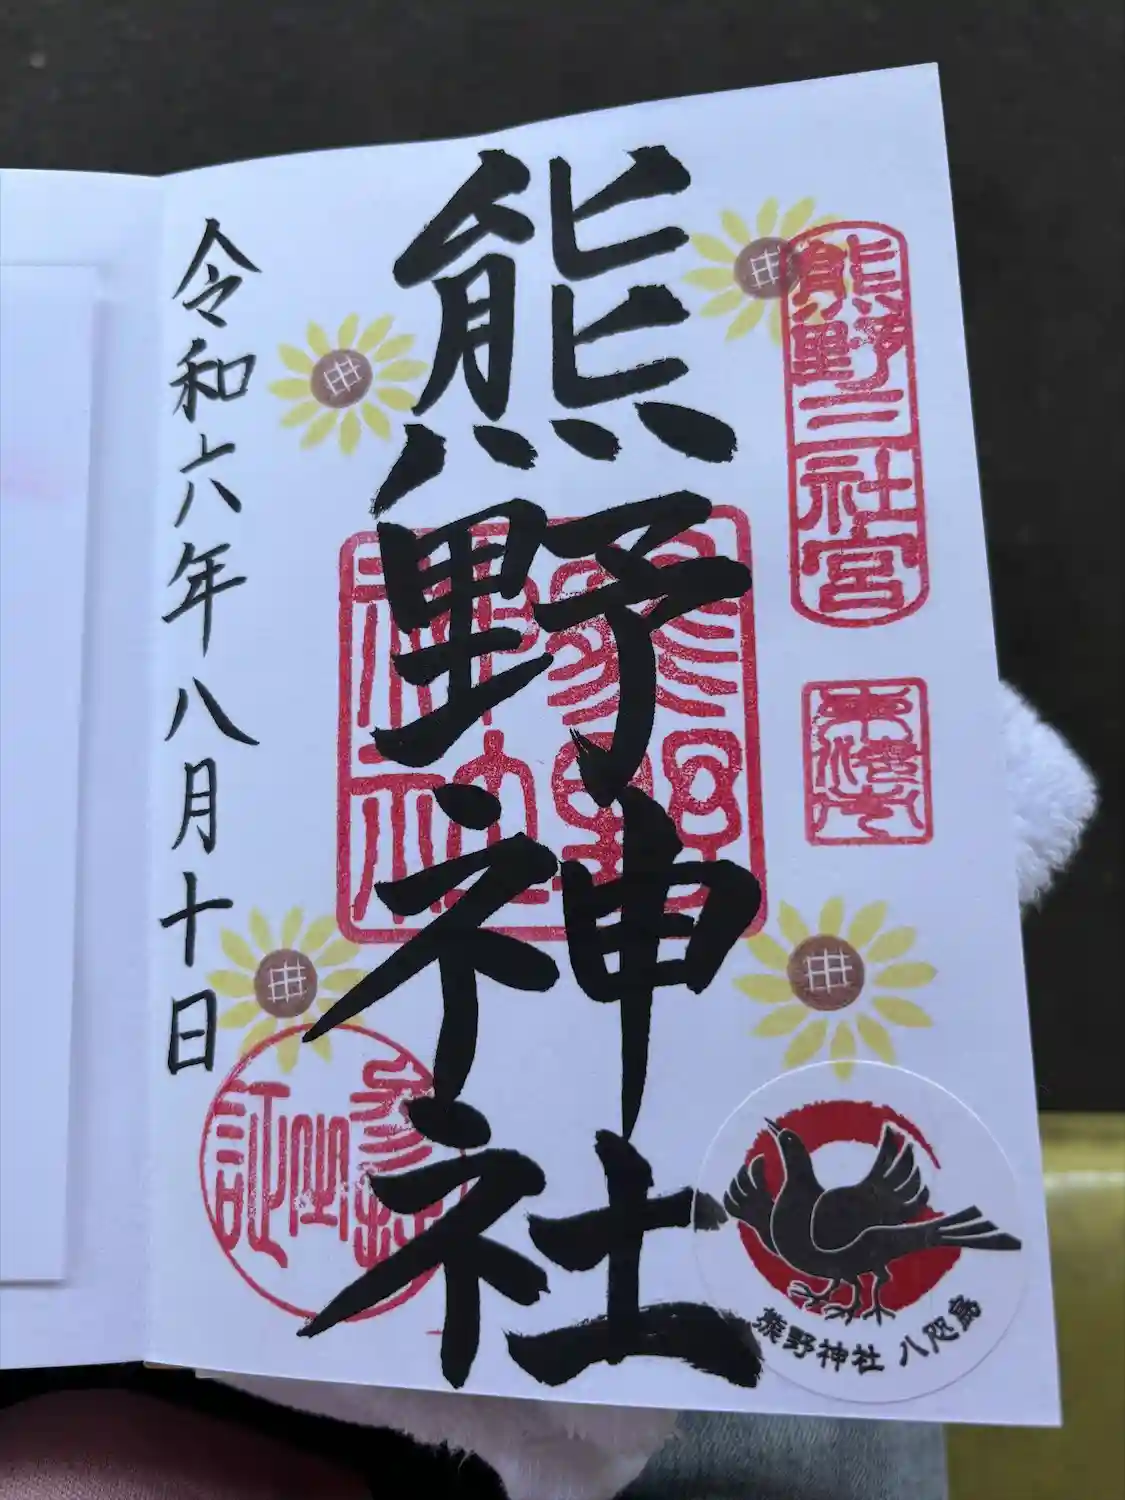 熊野三社宮
熊野神社
熊野神社
令和六年八月十日
熊野神社 八咫烏